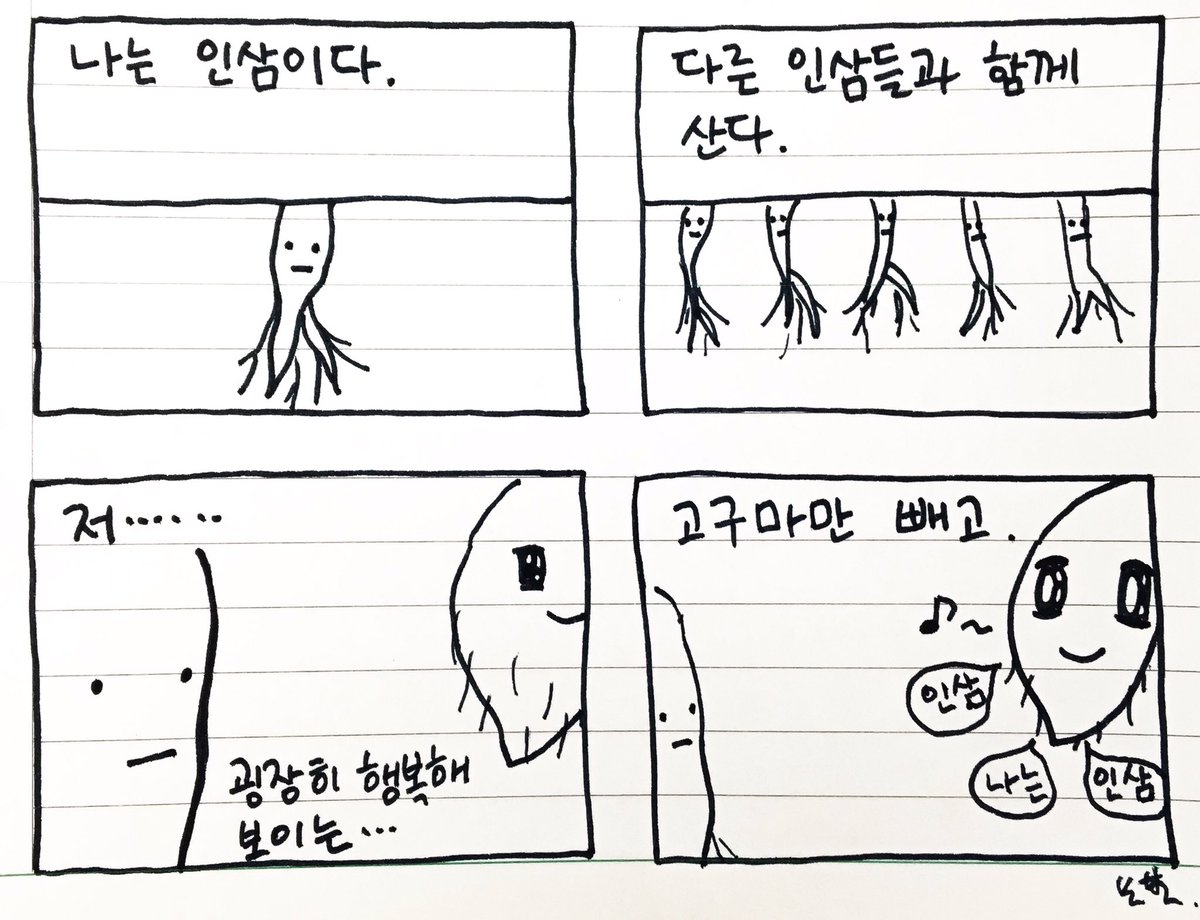 나는 인삼이다.
다른 인삼들과 함께
산다.
저......
굉장히 행복해
보이는...
고구마만 빼고.
인삼
나는
인삼